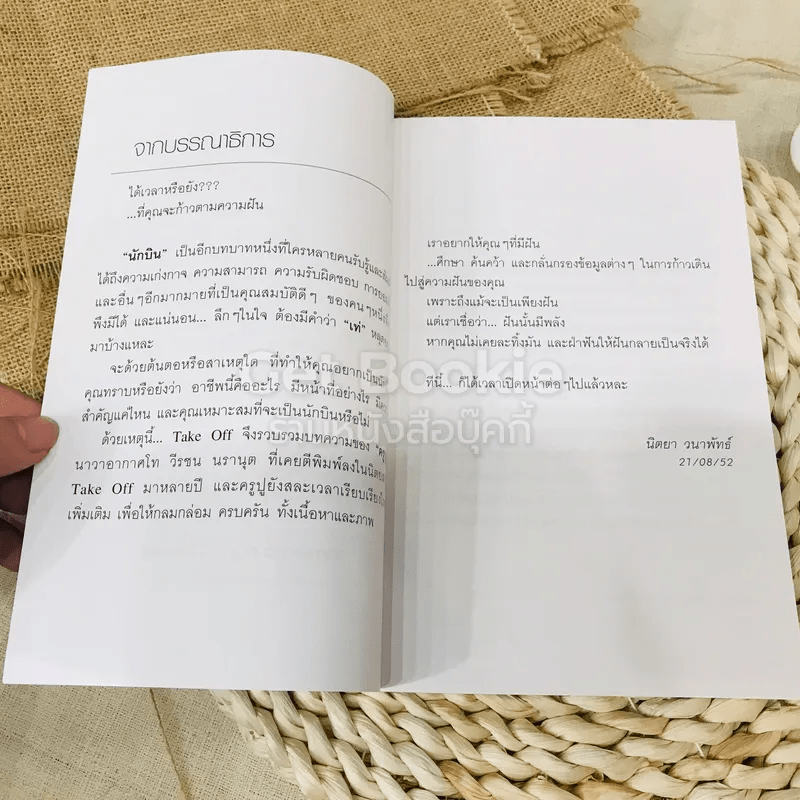 จากบรรณาธิการ
ได้เวลาหรือยัง???
...ที่คุณจะก้าวตามความฝัน
"นักบิน" เป็นอีกบทบาทหนึ่งที่ใครหลายคนรับรู้และ
ได้ถึงความเก่งกาจ ความสามารถ ความรับผิดชอบ
และอื่นๆอีกมากมายที่เป็นคุณสมบัติดีๆ ของคนๆหนึ่ง
พึงมีได้ และแน่นอน... ลึกๆในใจ ต้องมีคำว่า "เท่"
มาบ้างแหละ
จะด้วยต้นตอหรือสาเหตุใด ที่ทำให้คุณอยากเป็น
คุณทราบหรือยังว่า อาชีพนี้คืออะไร มีหน้าที่อย่างไร
สำคัญแค่ไหน และคุณเหมาะสมที่จะเป็นนักบินหรือไม่
ด้วยเหตุนี้... Take Off จึงรวบรวมบทความของ
นาวาอากาศโท วีรชน นรานุต ที่เคยตีพิมพ์ลงในนิตย
Take Off มาหลายปี และครูปูยังสละเวลาเรียบเรียง
เพิ่มเติม เพื่อให้กลมกล่อม ครบครัน ทั้งเนื้อหาและภาพ
เราอยากให้คุณๆที่มีฝัน
...ศึกษา ค้นคว้า และกลั่นกรองข้อมูลต่างๆ ในการก้าวเดิน
ไปสู่ความฝันของคุณ
เพราะถึงแม้จะเป็นเพียงฝัน
แต่เราเชื่อว่า... ฝันนั้นมีพลัง
หากคุณไม่เคยละทิ้งมัน และฝ่าฟันให้ฝันกลายเป็นจริงได้
ทีนี้... ก็ได้เวลาเปิดหน้าต่อๆไปแล้วหละ
นิตยา วนาพัทธ์
21/08/52
Get Bookie
ร้านหนังสือบุ๊คกี้